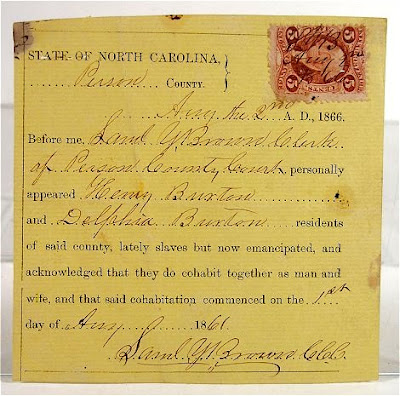 STATE OF NORTH CAROLINA,
Person COUNTY.
Aug the 2nd A. D., 1866.
Before me, Saml Y. Brown Clerk
of Person County Court, personally
appeared Henry Burton
and Delphia Burton residents
of said county, lately slaves but now emancipated, and
acknowledged that they do cohabit together as man and
wife, and that said cohabitation commenced on the 1st
day of Aug 1861.
Saml Y. Brown CCC
5 5
CENTS
Aug